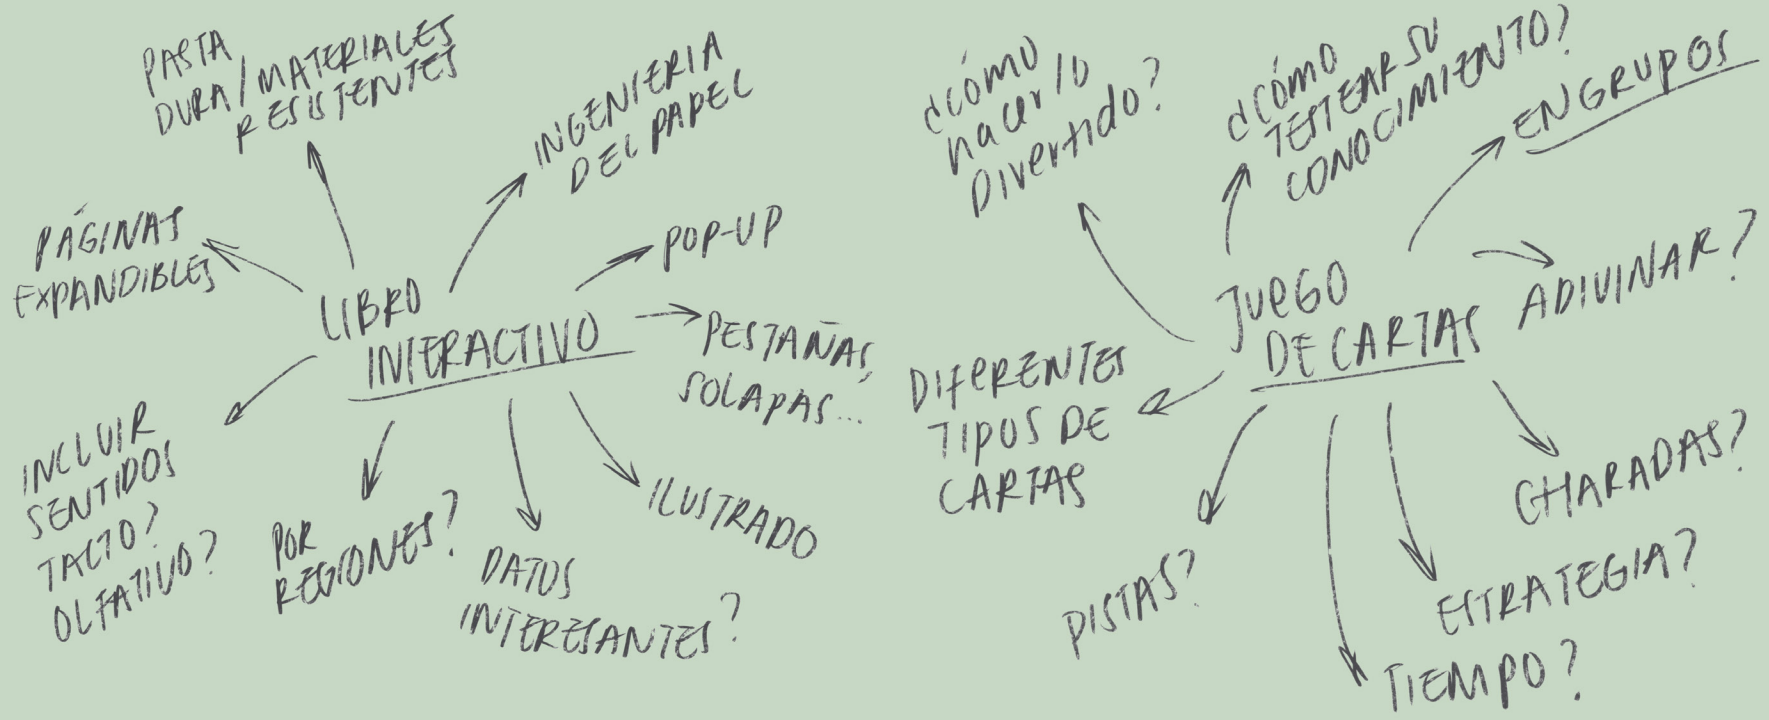 PASTA
DURA/MATERIALES
RESISTENTES
INGENIERIA
DEL PAPEL
PÁGINAS
EXPANDIBLES
POP-UP
LIBRO
INTERACTIVO
PESTAÑAS,
SOLAPAS...
INCLUIR
SENTIDOS
TACTO?
OLFATIVO?
POR
REGIONES?
DATOS
INTERESANTES?
ILUSTRADO
¿CÓMO
hacerlo
Divertido?
¿CÓMO
TESTEAR SU
CONOCIMIENTO?
EN GRUPOS
JUEGO
DE CARTAS
ADIVINAR?
DIFERENTES
TIPOS DE
CARTAS
CHARADAS?
PISTAS?
ESTRATEGIA?
TIEMPO?